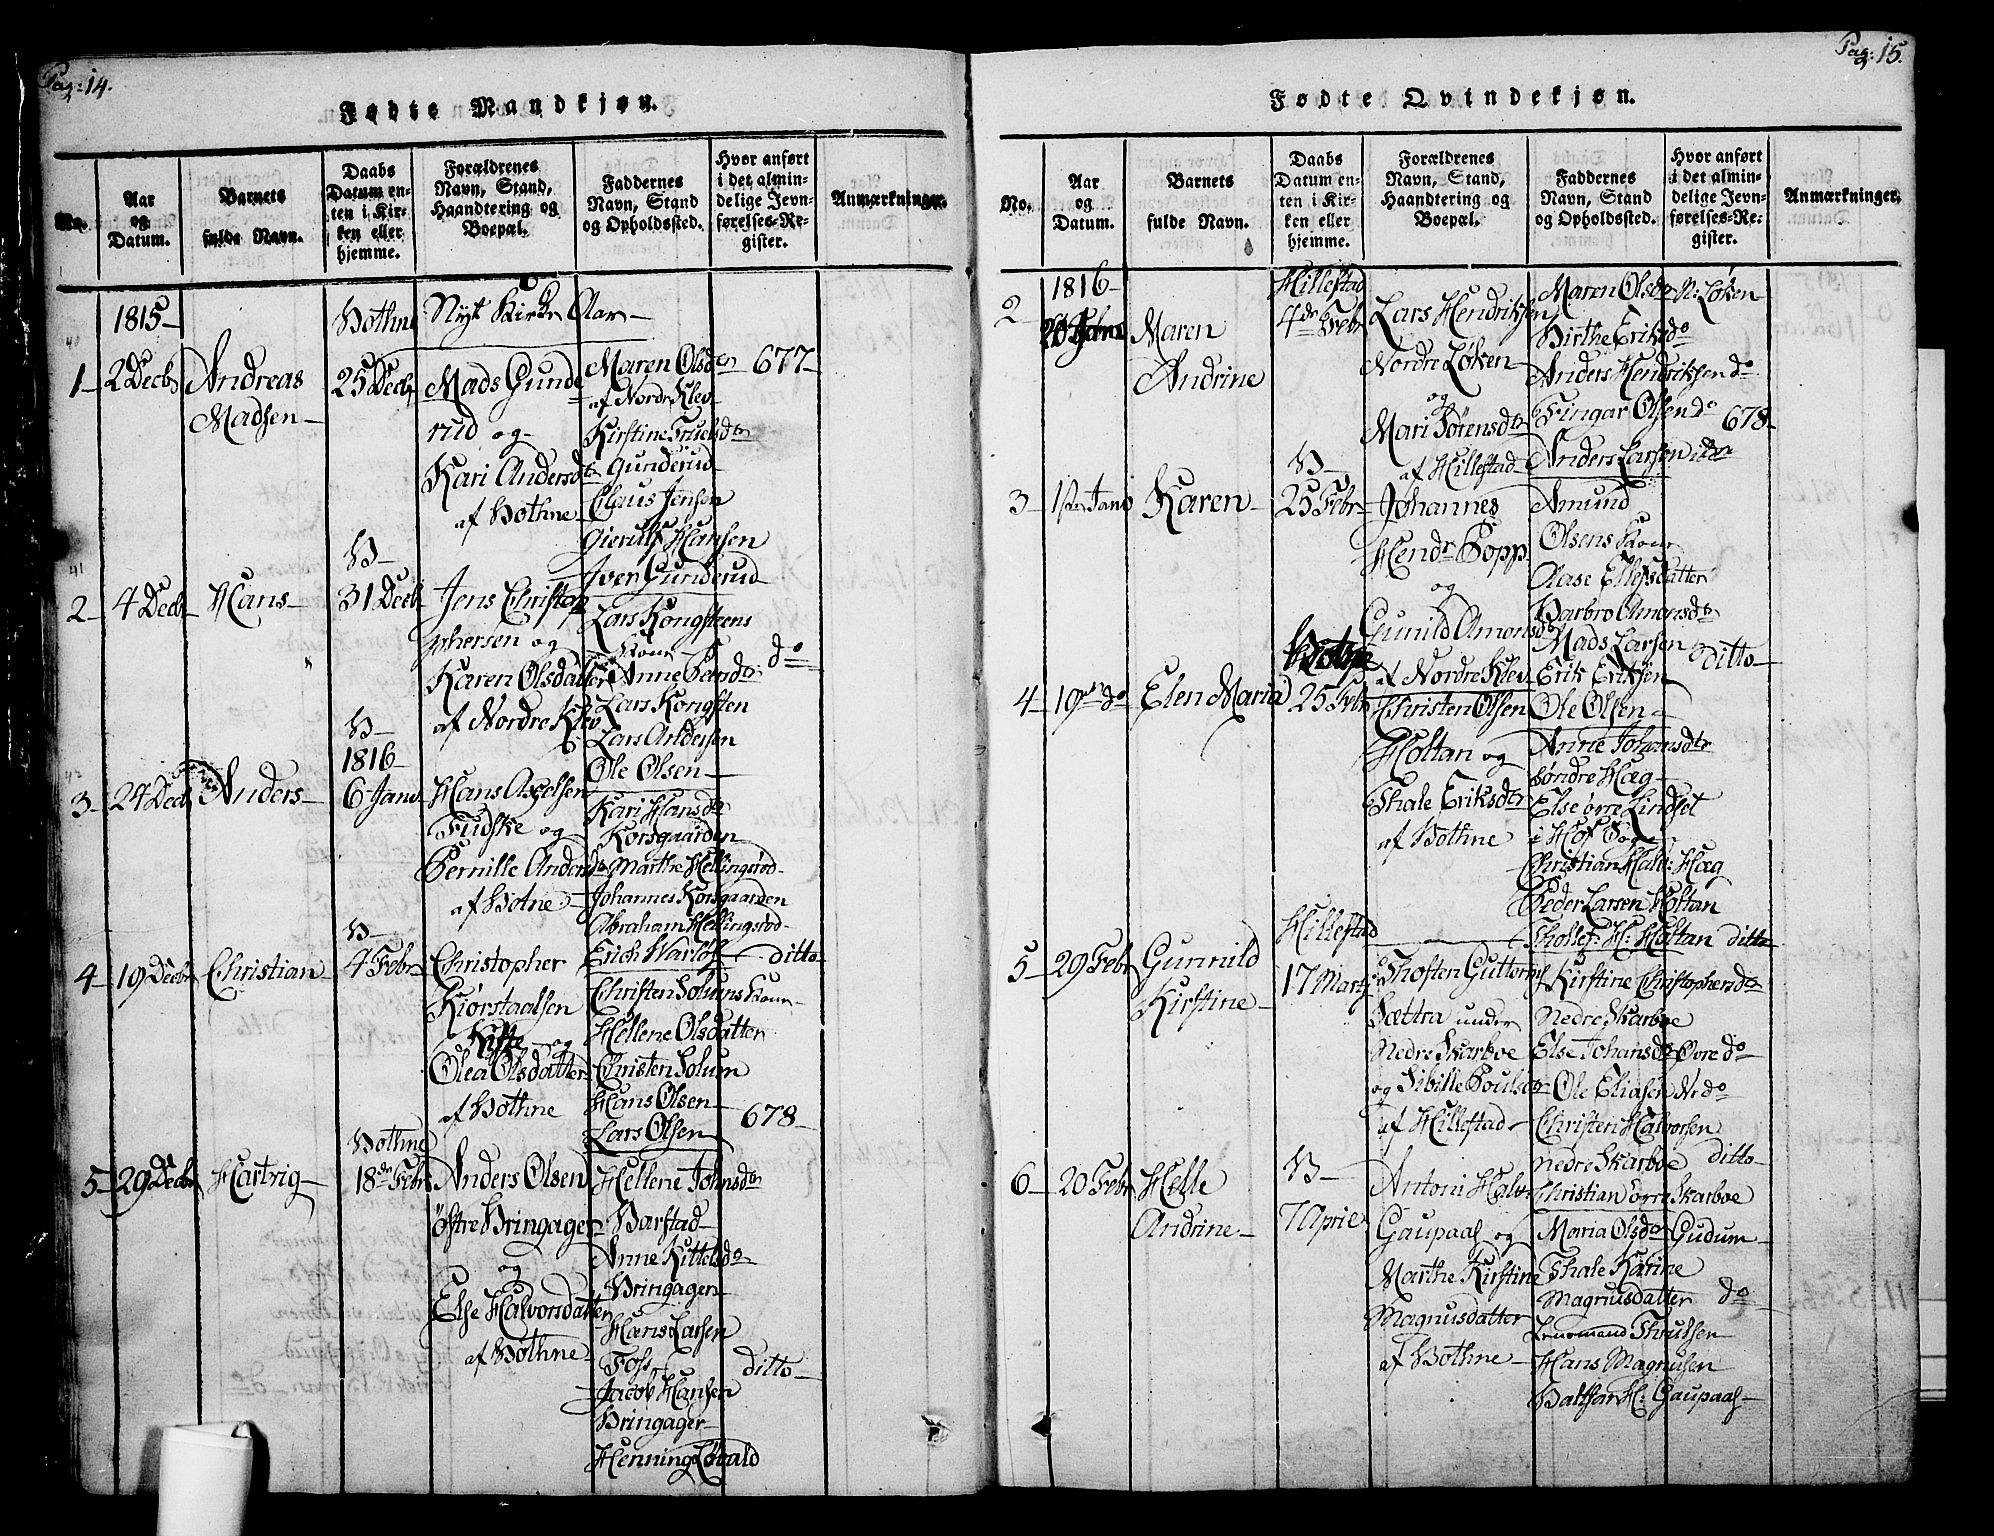 Pag: 14.
Fødte Mandkjøn.
No.
Aar
og
Datum.
Barnets
fulde Navn.
Daabs
Datum en-
ten i Kir-
ken eller
hjemme.
Forældrenes
Navn, Stand,
Haandtering og
Boepæl.
Faddernes
Navn, Stand
og Opholdssted.
Hvor anført
i det almin-
delige Jevn-
førelses-Re-
gister.
Anmærkninger.
1815-
1- 2 Decb
Andreas
Madsen-
Bothne
25 Decb
Nyt Kirke Aar-
Mads Gunde
rud og
Kari Andersdtr
af Bothne-
Maren Olsdtr
af Nordre Klev-
Kirstine Truelsdtr
Gunderud-
Claus Jensen
Gierulf Hansen
Iver Gunderud
677-
41
2- 4 Decb
Hans-
B-
31 Decb
Jens Christop
phersen og
Karen Olsdatter
af Nordre Klev
Lars Kongsteens
Kone
Anne Pedersdtr
Lars Kongsten
Lars Andersen
Ole Olsen-
do-
3- 24 Decb
Anders-
B-
1816-
6 Janr
Hans Axelsen
Fudske og
Pernille Andersdtr
af Botne-
Kari Hansdtr
Korsgaarden
Marthe Hellingsrød-
Johannes Korsgaarden
Abraham Hellingsrød-
Erich Warløs-
ditto-
4- 19 Decbr
Christian-
B-
4 Febr
Christopher
Kiørstaalsen
og
Olea Olsdatter
af Bothne
Christen Solums Kone-
Hellene Olsdatter
Christen Solum
Hans Olsen-
Lars Olsen
678-
5- 29 Decbr
Hartvig-
Bothne
18de Febr
Anders Olsen
Østre Bringager-
og
Else Halvorsdatter
af Bothne-
Hellene Johnsdtr
Barstad-
Anne Kittelsdtr
Bringager-
Hans Larsen
Foss-
Jacob Hansen
Bringager-
Henning Løvald
ditto-
Pag: 15.
Fødte Qvindekjøn.
No.
Aar
og
Datum.
Barnets
fulde Navn.
Daabs
Datum en-
ten i Kir-
ken eller
hjemme.
Forældrenes
Navn, Stand,
Haandtering og
Boepæl.
Faddernes
Navn, Stand
og Opholdssted.
Hvor anført
i det almin-
delige Jevn-
førelses-Re-
gister.
Anmærkninger.
1816-
2-
Maren
Andrine
Hillestad
4de Febr
Lars Hendriksen
Nordre Løken
og
Mari Sørensdtr
af Hillestad
Maren Olsdtr N: Løken
Birthe Eriksdo
Anders Hendriksen do
Fingar Olsen do
Anders Larsen do
678-
3- Janr
Karen-
B-
25 Febr
Johannes
Hendr Popp
og
Gunild Amonsdtr
af Nordre Klev
Amund
Olsens Kone
Olase Ellefsdatter
Barbro Amonsdtr
Mads Larsen
Erik Eriksen
ditto-
4- 19 do
Elen Maria
Bothne
25 Febr
Christen Olsen
Holtan og
Thale Eriksdtr
af Bothne
Ole Olsen-
Anne Johansdtr
søndre Hæg-
Else øvre Lindset
i Hof Sog
Christian Hald: Hæg
Peder Larsen Holtan
Thollef: H: Holtan
ditto
5- 29 Febr
Gunnild
Kirstine-
Hillestad
17 Marti
Thoften Guttorms
Sættra under
Nedre Skarboe
og Sibille Poulsdtr
af Hillestad-
Kirstine Christophersdtr
Nedre Skarboe
Else Johansdtr Øvre do
Ole Eliasen N: do
Christen Halvorsen
Nedre Skarboe
Christian øvre Skarboe
ditto-
6- 20 Febr
Helle
Andrine-
B-
7 April
Antoni Halv
Gaupaal og
Marthe Kirstine
Magnusdatter
af Bothne-
Maria Olsdtr Gudum-
Thale Karine
Magnusdatter
Lensmand Thrulsen
Hans Magnusen
Baltsar H: Gaupaal-
do-